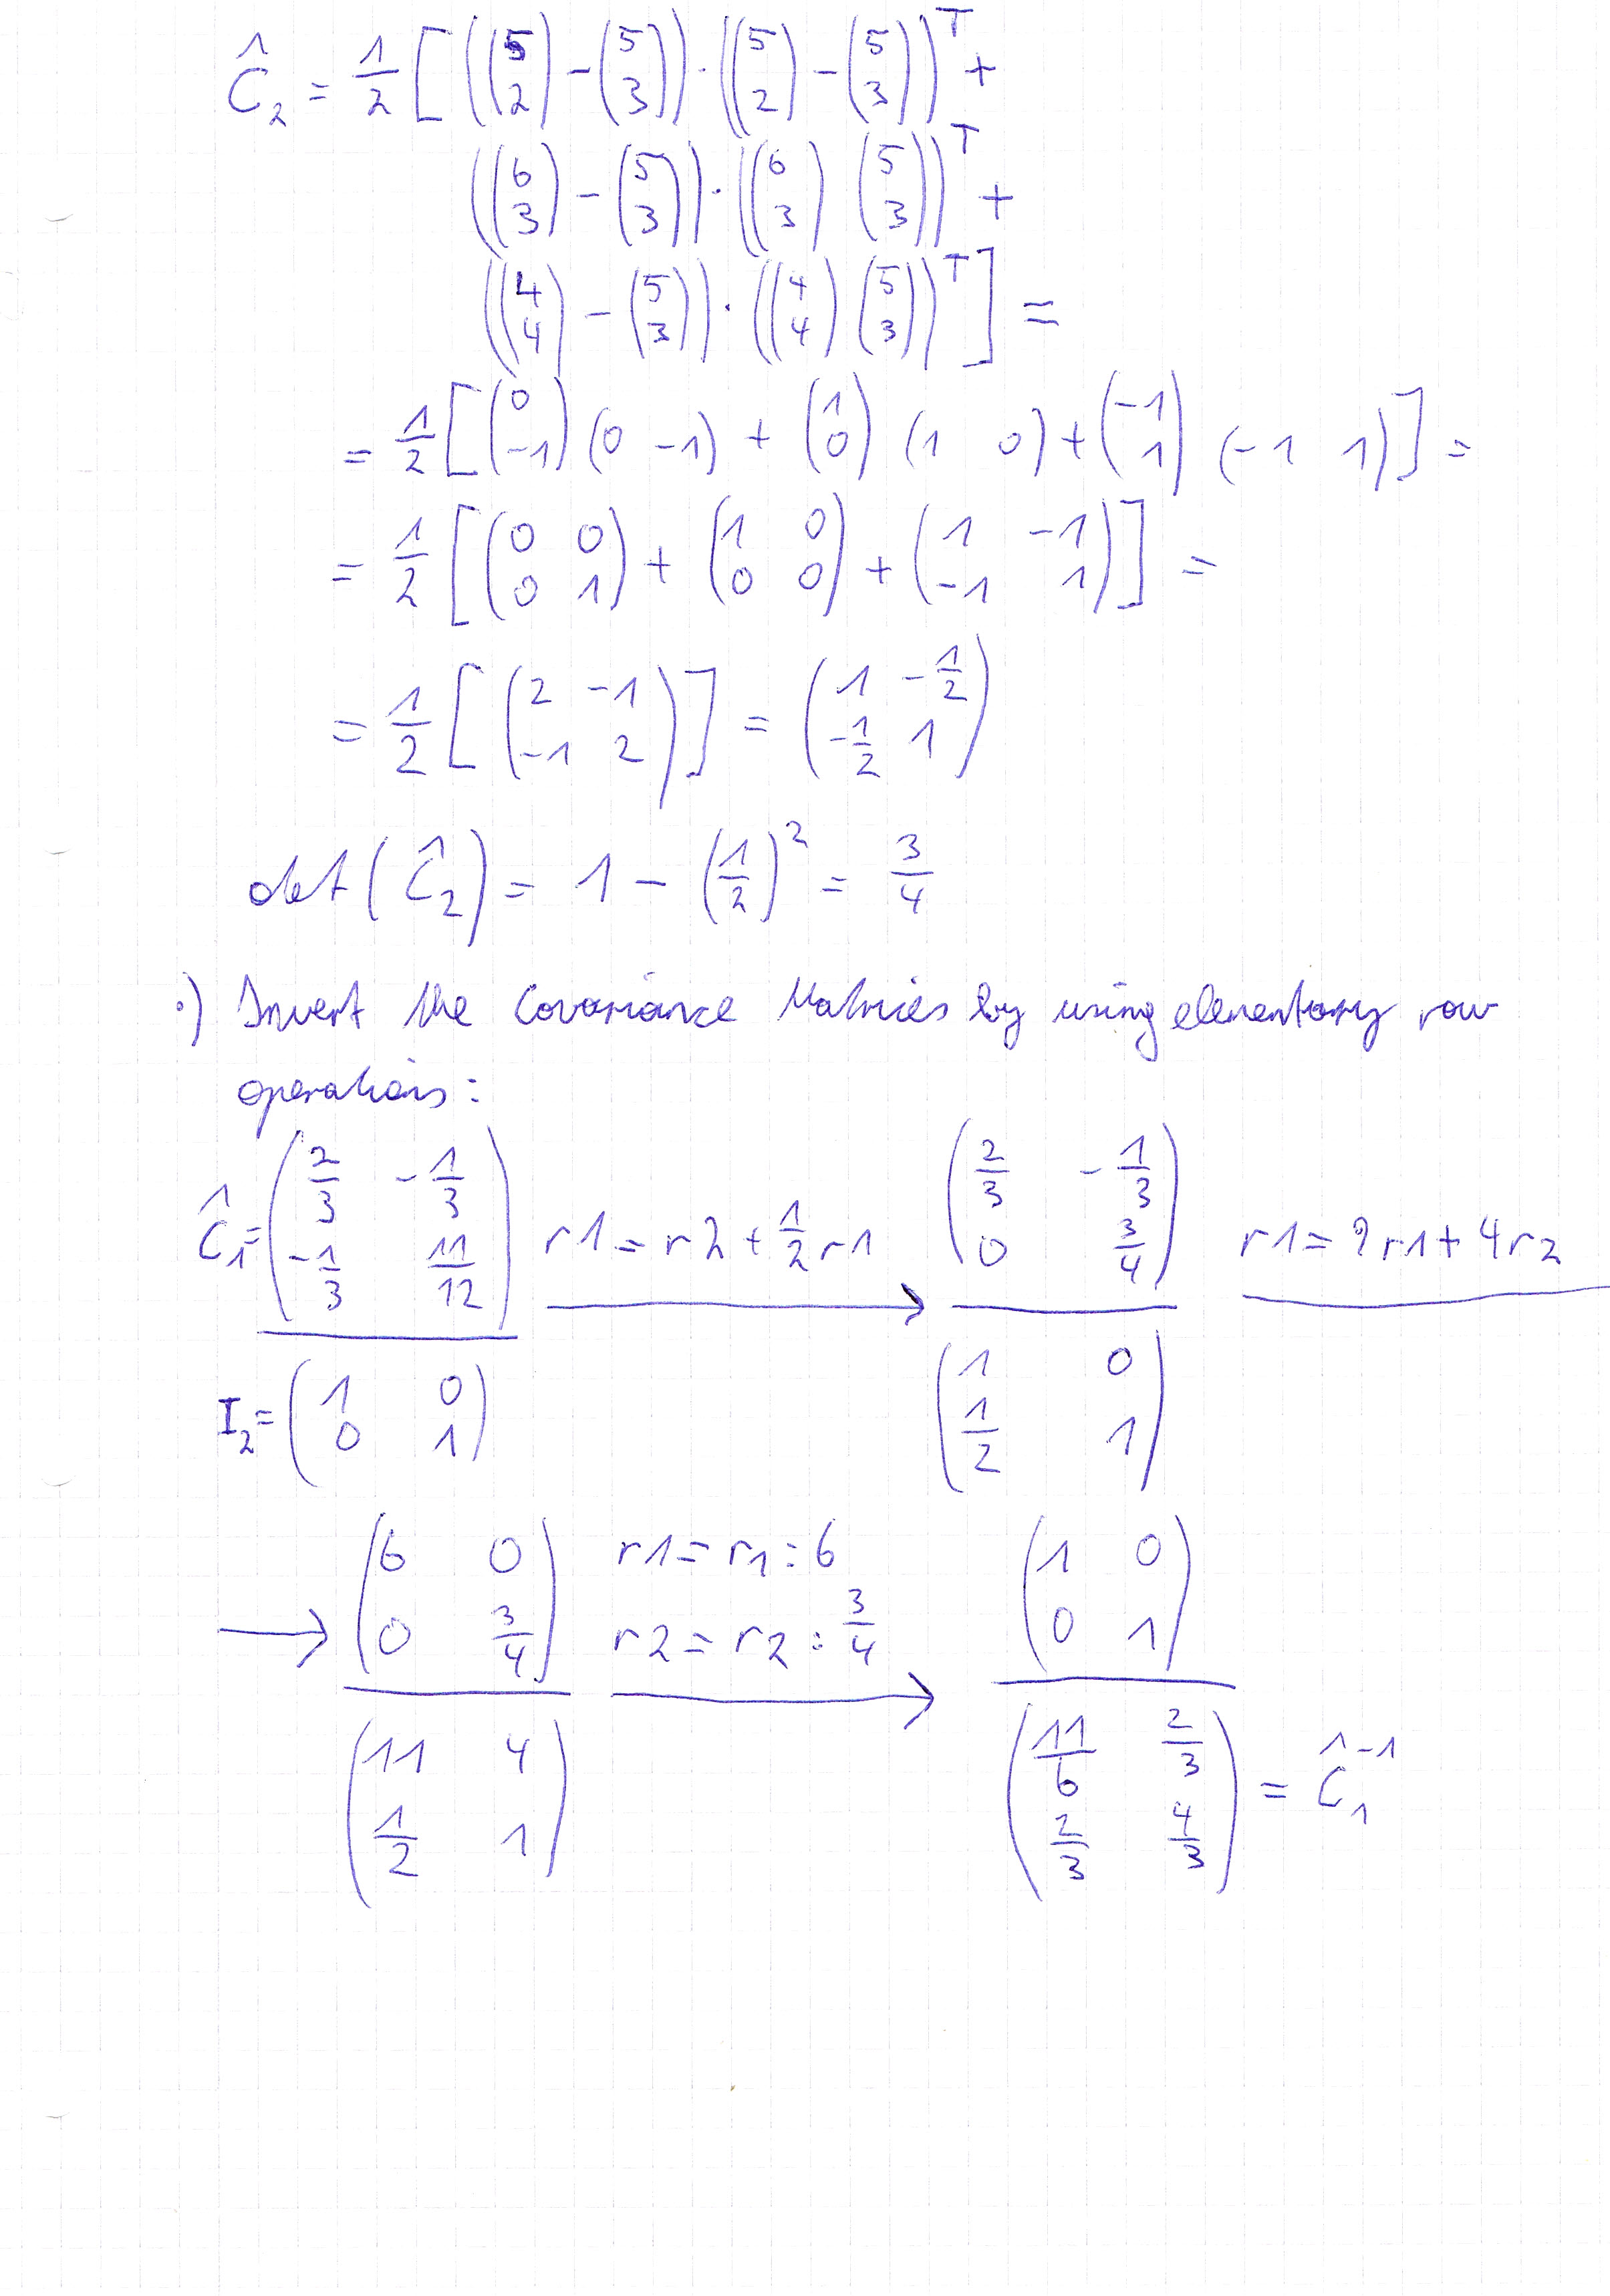 Ĉ₂ = 1/2 [ ((5 2) - (5 3)) · ((5 2) - (5 3))ᵀ +
((6 3) - (5 3)) · ((6 3) (5 3))ᵀ +
((4 4) - (5 3)) · ((4 4) (5 3))ᵀ ] =
= 1/2 [ (0 -1) (0 -1) + (1 0) (1 0) + (-1 1) (-1 1) ] =
= 1/2 [ (0 0; 0 1) + (1 0; 0 0) + (1 -1; -1 1) ] =
= 1/2 [ (2 -1; -1 2) ] = (1 -1/2; -1/2 1)
det(Ĉ₂) = 1 - (1/2)² = 3/4
·) Invert the Covariance Matrices by using elementary row
operations:
Ĉ₁ = (2/3 -1/3; -1/3 11/12) r1 = r2 + 1/2 r1 (2/3 -1/3; 0 3/4) r1 = 9r1 + 4r2
I₂ = (1 0; 0 1) (1 0; 1/2 1)
→ (6 0; 0 3/4) r1 = r1 : 6 r2 = r2 : 3/4 → (1 0; 0 1)
(11 4; 1/2 1) (11/6 2/3; 2/3 4/3) = Ĉ₁⁻¹